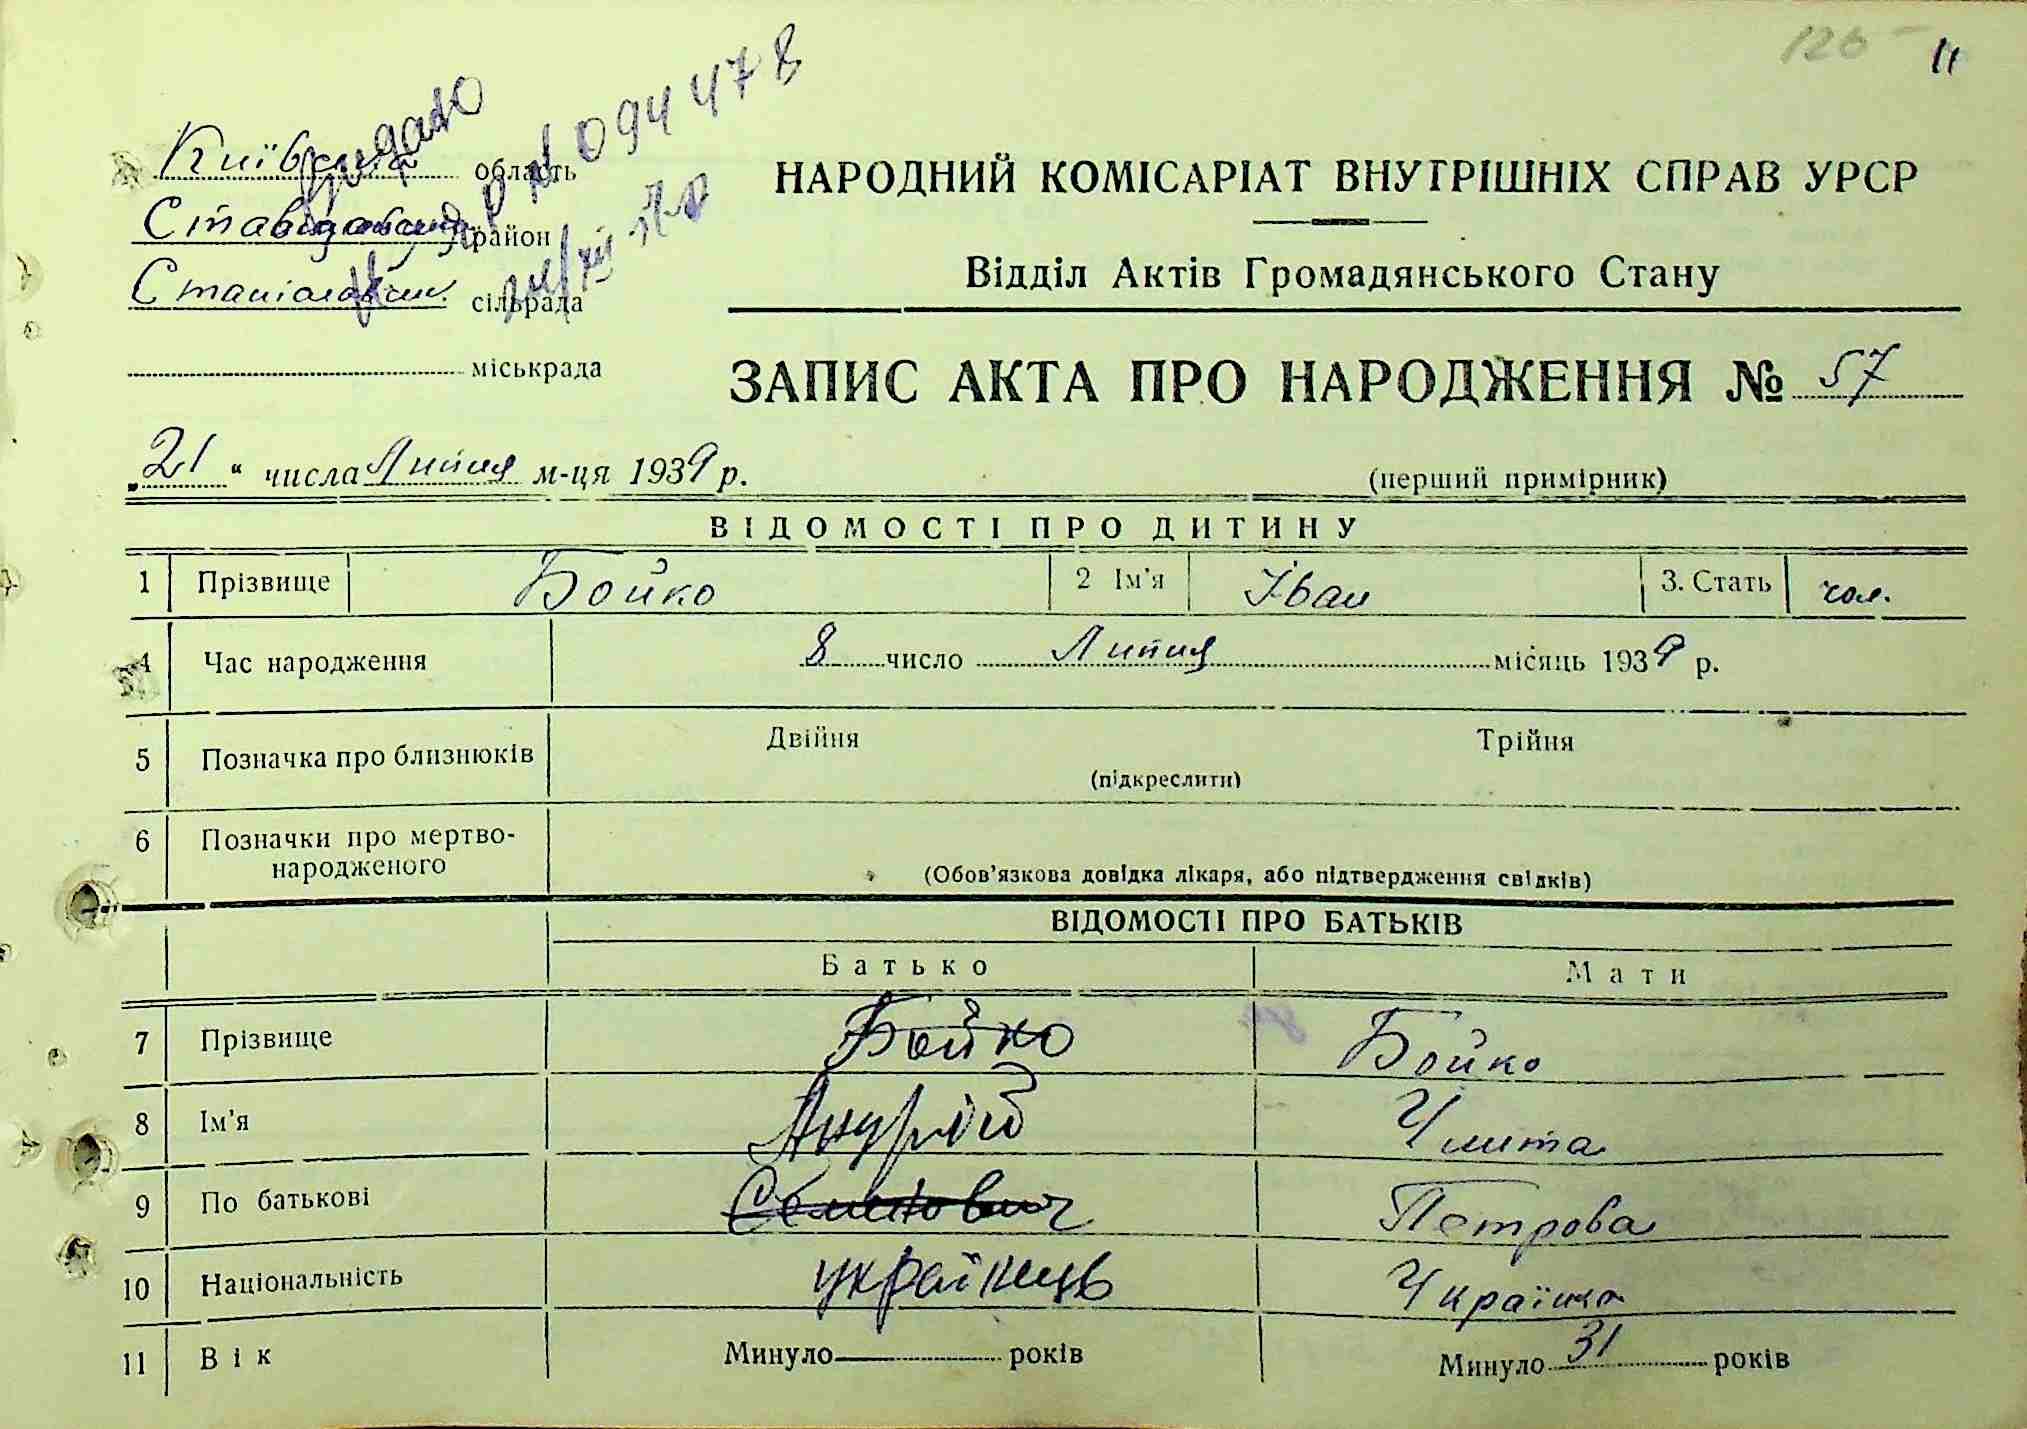 126 11
Київська область
Ставищанський район
сільрада
міськрада
Видано
094478
НАРОДНИЙ КОМІСАРІАТ ВНУТРІШНІХ СПРАВ УРСР
Відділ Актів Громадянського Стану
ЗАПИС АКТА ПРО НАРОДЖЕННЯ № 57
„21“ числа Липня м-ця 1939 р.
(перший примірник)
ВІДОМОСТІ ПРО ДИТИНУ
1 Прізвище Бойко 2 Ім'я Іван 3. Стать чол.
4 Час народження 8 число Липня місяць 1939 р.
5 Позначка про близнюків Двійня Трійня
(підкреслити)
6 Позначки про мертво-
народженого
(Обов'язкова довідка лікаря, або підтвердження свідків)
ВІДОМОСТІ ПРО БАТЬКІВ
Батько Мати
7 Прізвище Бойко Бойко
8 Ім'я Андрій
9 По батькові Семенович Петрова
10 Національність українець Українка
11 Вік Минуло — років Минуло 31 років